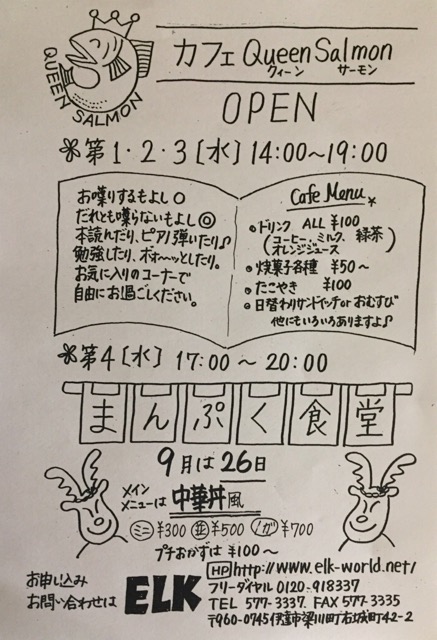 QUEEN SALMON
カフェ Queen Salmon
クィーン サーモン
OPEN
❊第1・2・3[水] 14:00〜19:00
お喋りするもよし○
だれとも喋らないもよし◎
本読んだり、ピアノ弾いたり♪
勉強したり、ボォ〜ッとしたり。
お気に入りのコーナーで
自由にお過ごしください。
Cafe Menu *
●ドリンク ALL ¥100
(コーヒー、ミルク、緑茶
オレンジジュース)
●焼菓子各種 ¥50〜
●たこやき ¥100
●日替わりサンドイッチor おむすび
他にもいろいろありますよ♪
❊第4[水] 17:00〜20:00
まんぷく食堂
9月は26日
メイン
メニューは 中華丼風
ミニ ¥300 並 ¥500 メガ ¥700
プチおかずは ¥100〜
お申し込み
お問い合わせは
ELK
HP http://www.elk-world.net/
フリーダイヤル 0120-918337
TEL 577-3337. FAX 577-3335
〒960-0745 伊達市梁川町右城町42-2